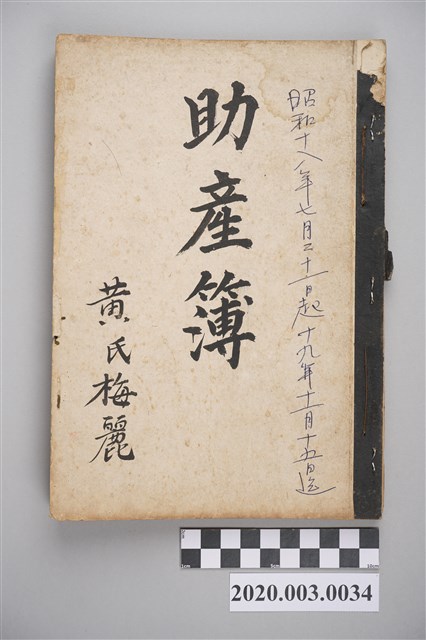 昭和十八年七月二十一日起 十九年十一月十五日迄
助產簿
黃氏梅麗
1cm 5cm 10cm
2020.003.0034